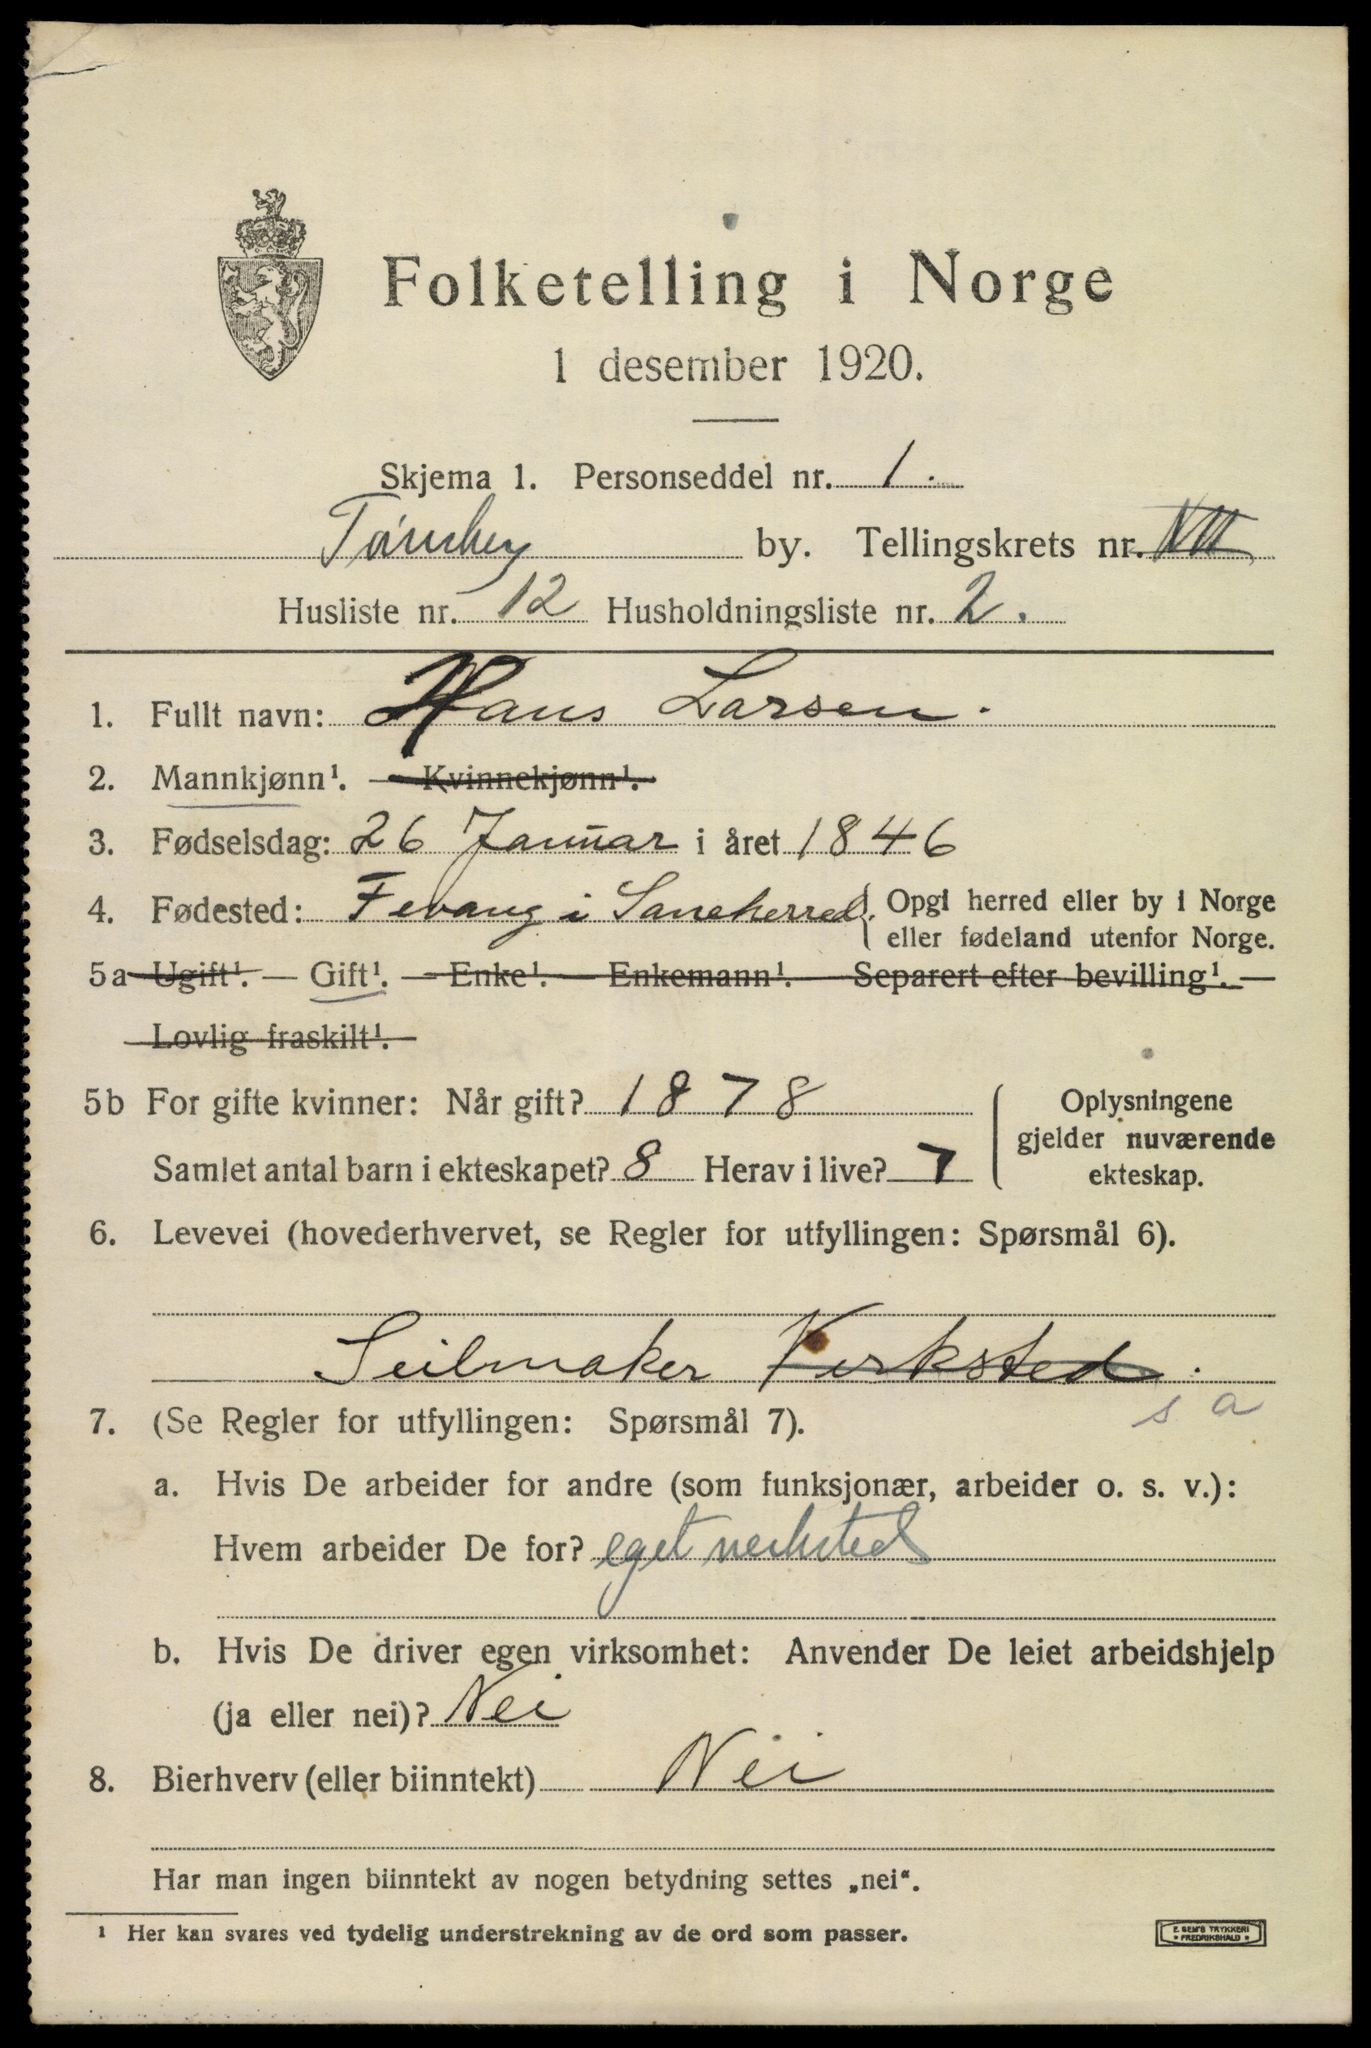 Folketelling i Norge
1 desember 1920.
Skjema 1. Personseddel nr. 1.
Tønsberg by. Tellingskrets nr.
Husliste nr. 12 Husholdningsliste nr. 2.
1. Fullt navn: Hans Larsen.
2. Mannkjønn¹. — Kvinnekjønn¹.
3. Fødselsdag: 26 Januar i året 1846
4. Fødested: Fevang i Sandeherred { Opgi herred eller by i Norge
eller fødeland utenfor Norge.
5a Ugift¹. — Gift¹. — Enke¹. — Enkemann¹. — Separert efter bevilling¹. —
Lovlig fraskilt¹.
5b For gifte kvinner: Når gift? 1878
Samlet antal barn i ekteskapet? 8 Herav i live? 7
Oplysningene
gjelder nuværende
ekteskap.
6. Levevei (hovederhvervet, se Regler for utfyllingen: Spørsmål 6).
Seilmaker Verksted.
s a
7. (Se Regler for utfyllingen: Spørsmål 7).
a. Hvis De arbeider for andre (som funksjonær, arbeider o. s. v.):
Hvem arbeider De for? eget verksted
b. Hvis De driver egen virksomhet: Anvender De leiet arbeidshjelp
(ja eller nei)? Nei
8. Bierhverv (eller biinntekt) Nei
Har man ingen biinntekt av nogen betydning settes „nei“.
¹ Her kan svares ved tydelig understrekning av de ord som passer.
E. SEM'S TRYKKERI
* FREDRIKSHALD *